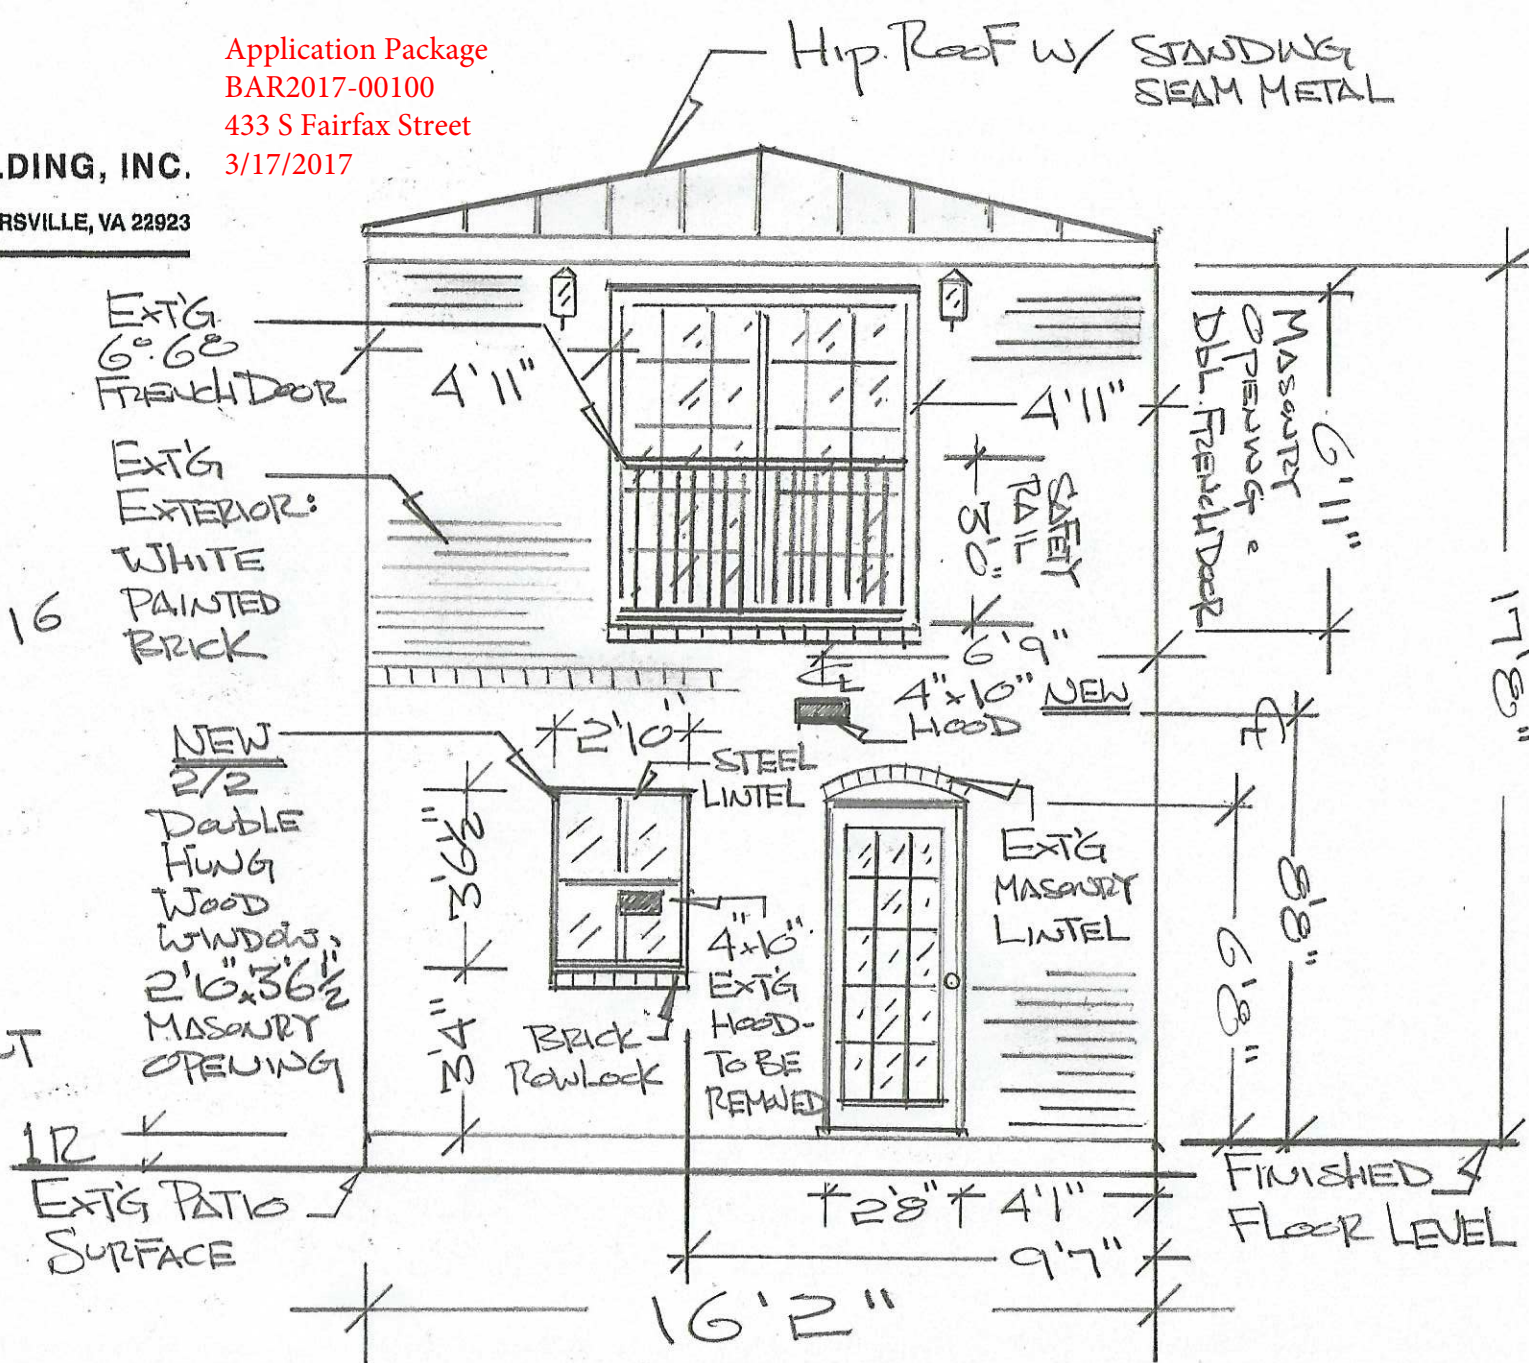 Application Package
BAR2017-00100
433 S Fairfax Street
3/17/2017
LDING, INC.
RSVILLE, VA 22923
Hip. Roof W/ STANDING
SEAM METAL
EXT'G
6⁰·6⁸
FRENCH DOOR
4'11"
4'11"
MASONRY
OPENING:
DBL. FRENCH DOOR
6'11"
17'8"
EXT'G
EXTERIOR:
WHITE
PAINTED
BRICK
16
SAFETY
RAIL
3'0"
6'9"
4"x10" NEW
HOOD
NEW
2/2
DOUBLE
HUNG
WOOD
WINDOW,
2'10"x3'6½"
MASONRY
OPENING
2'10"
STEEL
LINTEL
3'6½"
3'4"
BRICK
ROWLOCK
4"x10"
EXT'G
HOOD-
TO BE
REMOVED
EXT'G
MASONRY
LINTEL
8'8"
6'8"
EXT'G PATIO
SURFACE
2'8"
4'1"
9'7"
16'2"
FINISHED
FLOOR LEVEL